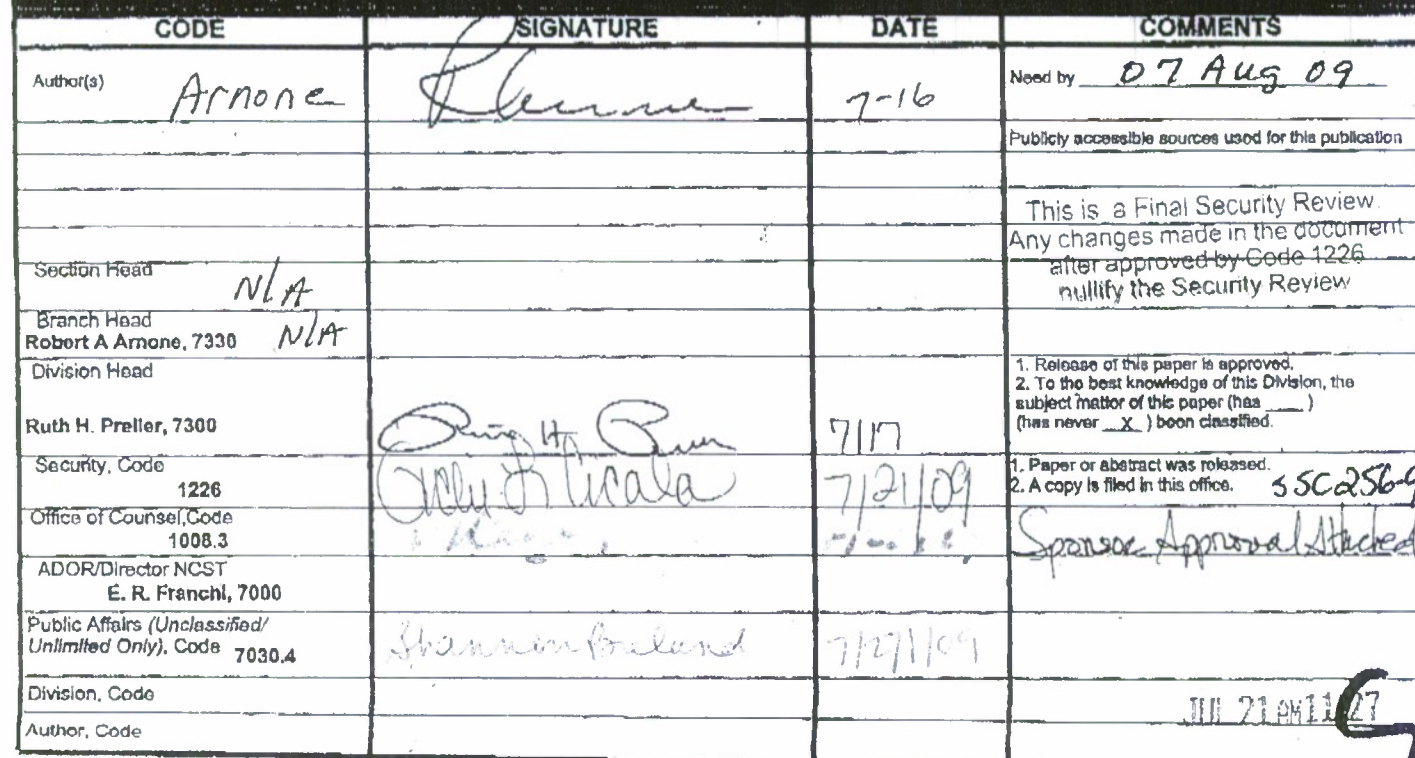 CODE SIGNATURE DATE COMMENTS
Author(s) Arnone 7-16 Need by 07 Aug 09
Publicly accessible sources used for this publication
This is a Final Security Review.
Any changes made in the document
after approved by Code 1226
nullify the Security Review
Section Head N/A
Branch Head
Robert A Arnone, 7330 N/A
Division Head
1. Release of this paper is approved.
2. To the best knowledge of this Division, the
subject matter of this paper (has ____ )
(has never X ) been classified.
Ruth H. Preller, 7300 7/17
Security, Code
1226 7/21/09
1. Paper or abstract was released.
2. A copy is filed in this office. SSC256-9
Office of Counsel,Code
1008.3
Sponsor Approval Attached
ADOR/Director NCST
E. R. Franchi, 7000
Public Affairs (Unclassified/
Unlimited Only), Code 7030.4 Shannon Breland 7/27/09
Division, Code
JUL 21 AM 11 27
Author, Code